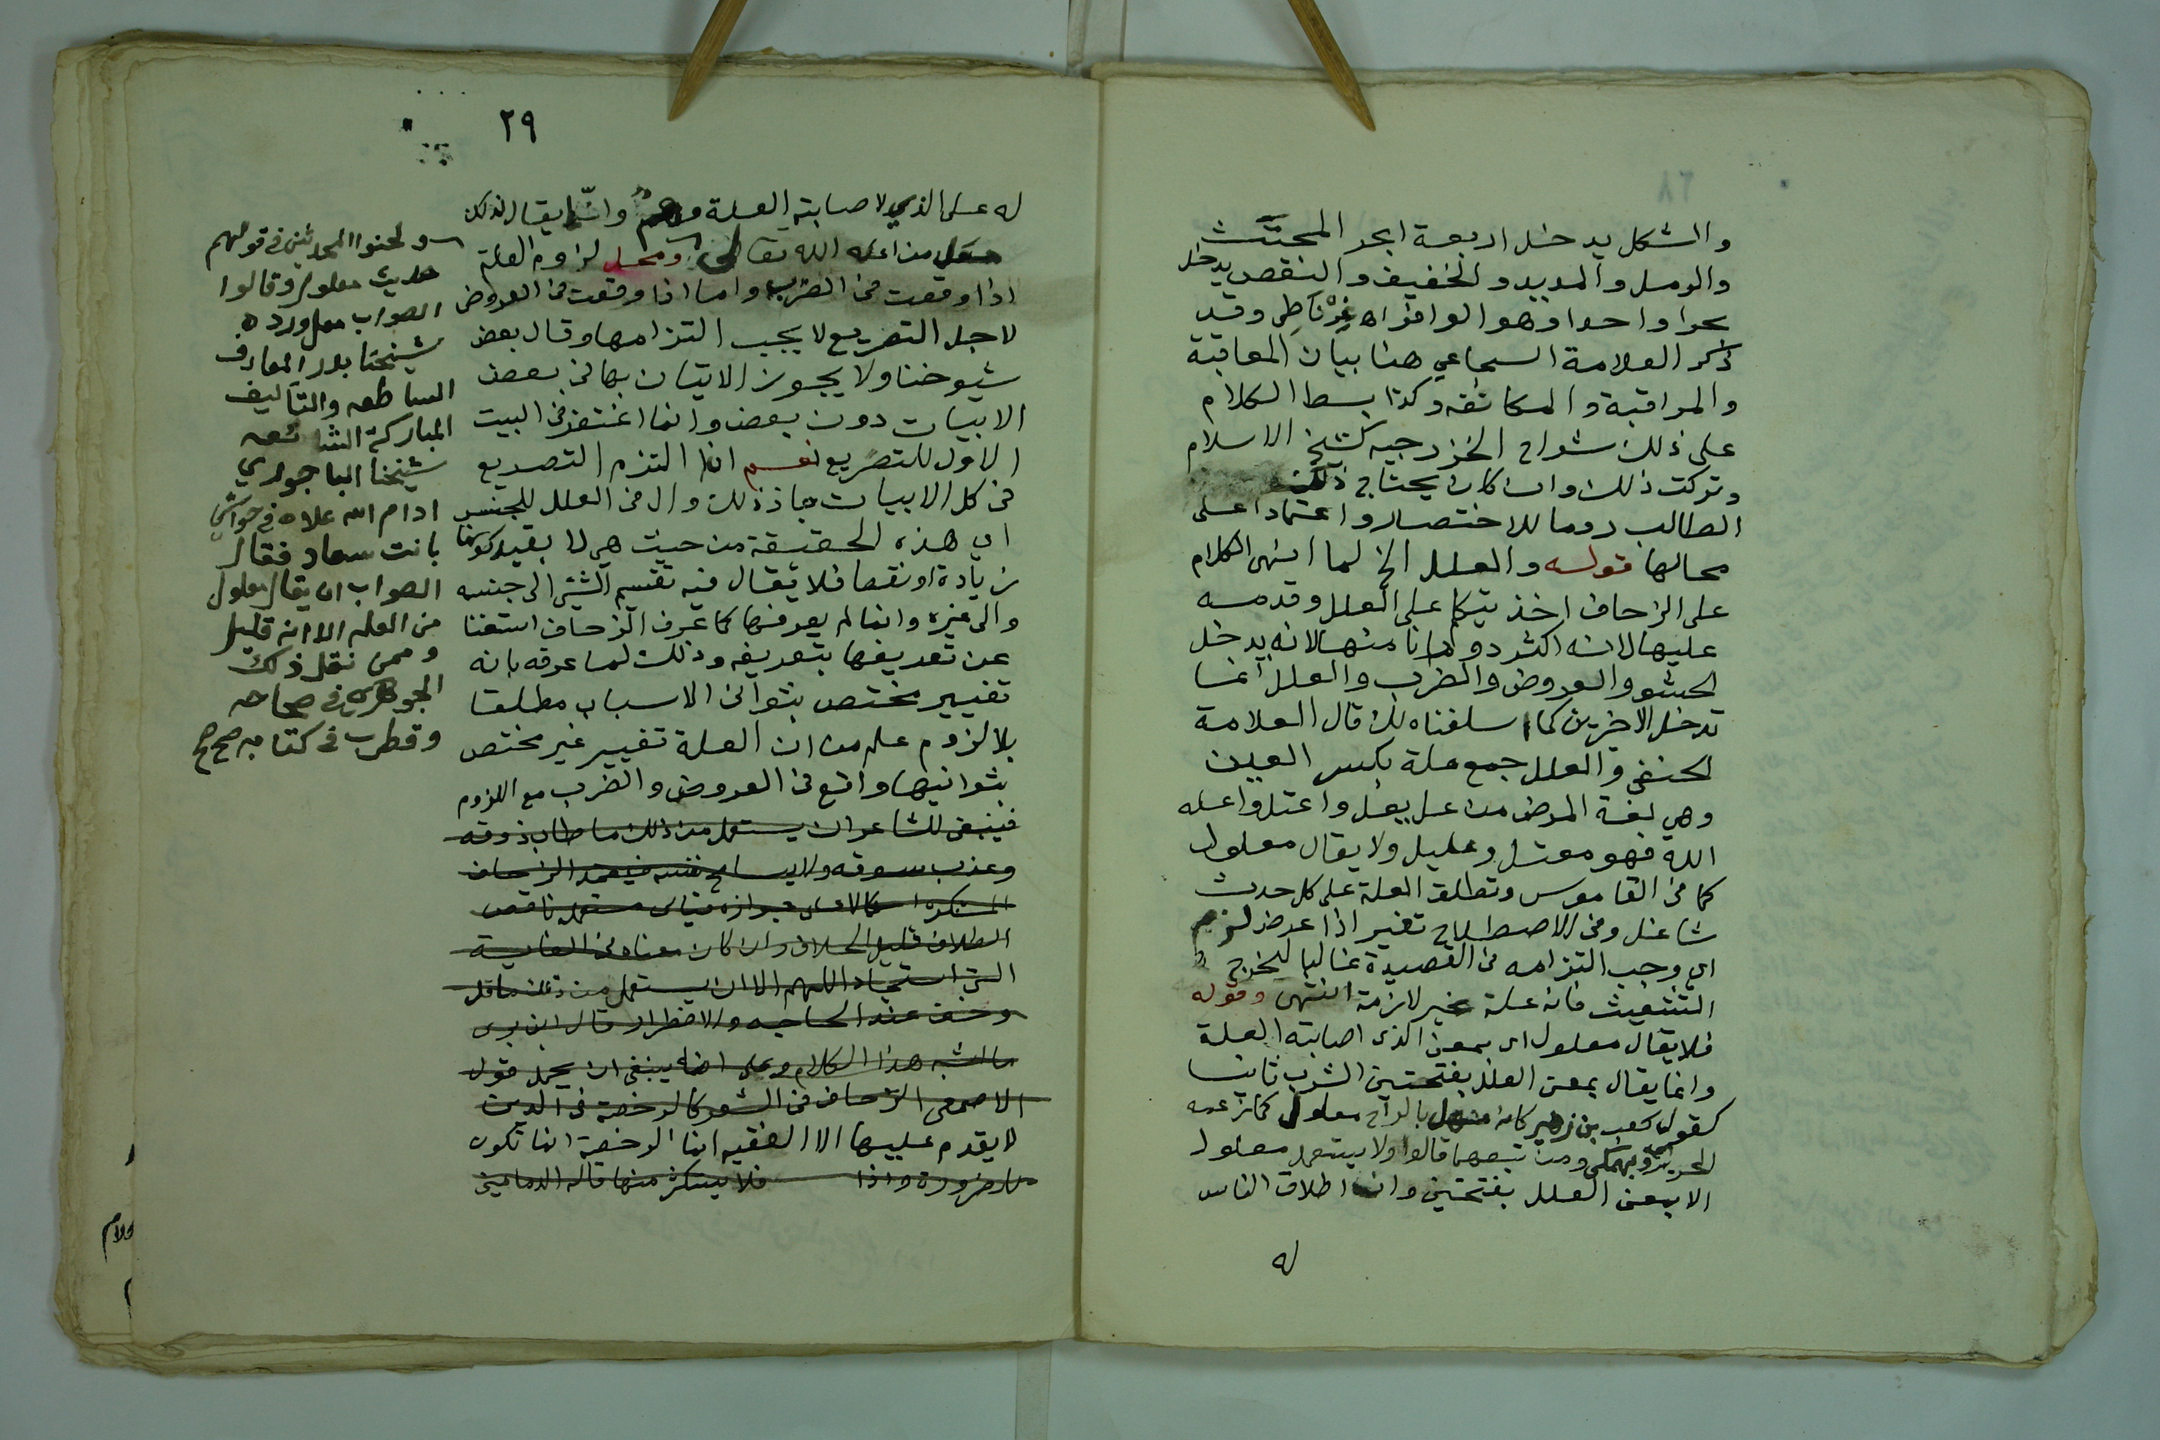 والشكل يدخل اربعة ابحر المجتث
والرمل والمديد والخفيف والنقص يدخل
بحرا واحدا وهو الوافر اه غرناطي وقد
ذكر العلامة السجاعي هنا بيان المعاقبة
والمراقبة والمكانفه وكذا بسط الكلام
على ذلك شراح الخزرجيه كشيخ الاسلام
وتركت ذلك وان كان يحتاج
الطالب روما للاختصار واعتمادا على
محالها قوله والعلل الخ لما انهى الكلام
على الزحاف اخذ يتكلم على العلل وقدمه
عليها لانه اكثر دورانا منها لانه يدخل
الحشو والعروض والضرب والعلل انما
تدخل الاخرين كما اسلفناه لك قال العلامة
الحنفي والعلل جمع علة بكسر العين
وهي لغة المرض من عل يعل واعتل واعله
الله فهو معتل وعليل ولا يقال معلول
كما في القاموس وتطلق العلة على كل حدث
شاغل وفي الاصطلاح تغير اذا عرض لزم
اي وجب التزامه في القصيدة غالبا ليخرج
التشعيث فانه علة غير لازمة انتهى وقوله
فلا يقال معلول اي بمعنى الذى اصابته العلة
وانما يقال بمعنى العلل بفتحتين الشرب ثانيا
كقول كعب بن زهير كانه منهل بالراح معلول كما زعمه
الحريري ومن تبعهما قالوا ولا يستعمل معلول
الا بمعنى العلل بفتحتين وان اطلاق الناس
له
٢٩
له على الذي لاصابته العلة وانما يقال لذلك
معل من اعله الله تعالى ومحل لزوم العلة
اذا وقعت في الضرب واما اذا وقعت في العروض
لاجل التصريع لا يجب التزامها وقال بعض
شيوخنا ولا يجوز الاتيان بها في بعض
الابيات دون بعض وانما اغتفر في البيت
الاول للتصريع نعم ان التزم التصريع
في كل الابيات جاز ذلك وال في العلل للجنس
اي هذه الحقيقة من حيث هي لا بقيد كونها
زيادة او نقصا فلا يقال فيه تقسيم الشئ الى جنسه
والى غيره وانما لم يعرفها كما عرف الزحاف استغنا
عن تعريفها بتعريفه وذلك لما عرفه بانه
تغيير مختص بثواني الاسباب مطلقا
بلا لزوم علم من ان العلة تغيير غير مختص
بثوانيها واقع في العروض والضرب مع اللزوم
فينبغى للشاعر ان يستعمل من ذلك ما طاب ذوقه
وعذب سوقه ولا يسامح نفسه فيعمد الزحاف
المستكره
الطلاق قليل الحلاق وان كان معناه في الغاية
التي تستجاد اللهم الا ان يستعمل من ذلك ما قل
وخف عند الحاجه والاضطرار قال ابن برى
ما اشبه هذا الكلام وعلى هذا ينبغى ان يحمل قول
الاصمعى الزحاف في الشعر كالرخصة في الدين
لا يقدم عليها الا الفقيه انما الرخصة انما تكون
للضرورة واذا فلا يستكثر منها قاله الدماميني
ولحنوا المحدثين في قولهم
حديث معلول وقالوا
الصواب معل ورده
شيخنا بدر المعارف
الساطعه والتآليف
المباركة الشائعه
شيخنا الباجوري
ادام الله علاه في حواشي
بانت سعاد فقال
الصواب ان يقال معلول
من العله الا انه قليل
وممن نقل ذلك
الجوهري في صحاحه
وقطرب في كتابه صح صح